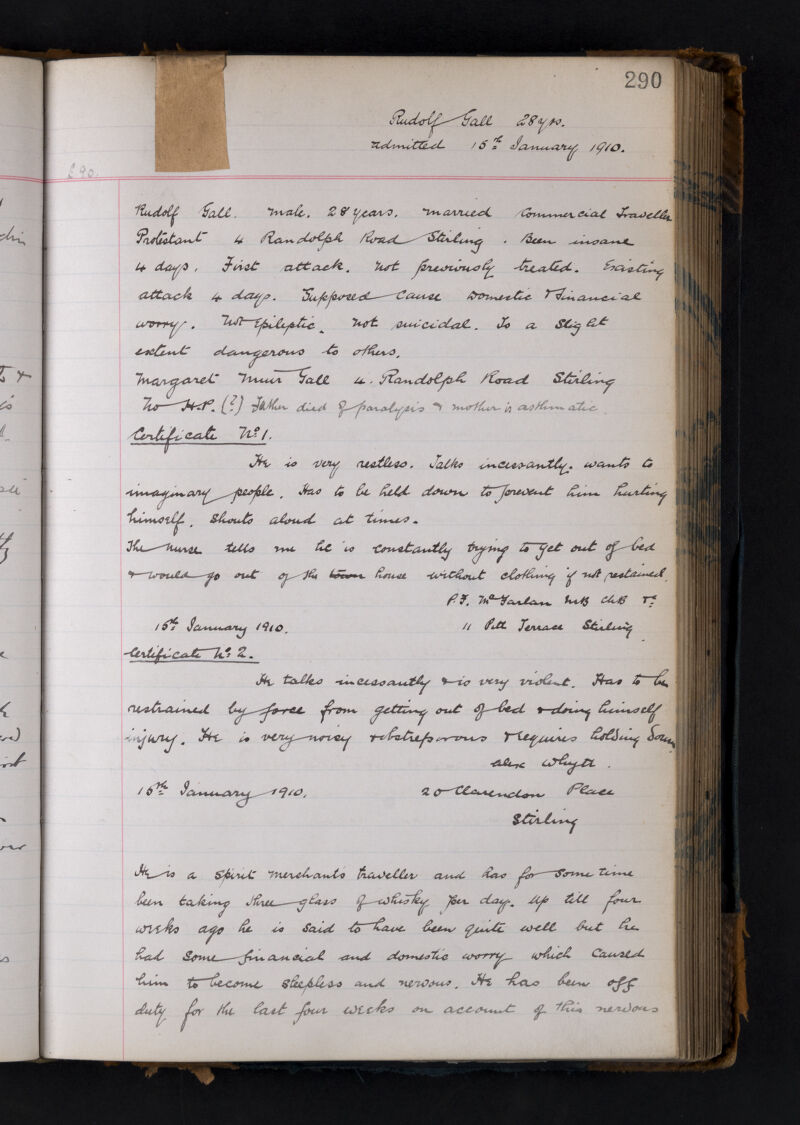 290
Rudolf Gall 28 yrs.
admitted 15th January 1910.
290.
Rudolf Gall. male. 28 years. married Commercial Traveller
Protestant 4 Randolph Road Stirling. Been insane
4 days. First attack. not previously treated. Existing
attack 4 days. Supposed cause Domestic & Financial
worry. Not Epileptic. not suicidal. To a slight
extent dangerous to others.
Margaret Muir Gall 4. Randolph Road Stirling
No H.P. (?) Father died of paralysis & mother is asthmatic.
Certificate No 1.
He is very restless. Talks incessantly. wants to
imaginary people. Has to be held down to prevent him hurting
himself. Shouts aloud at times.
The nurse tells me he is constantly trying to get out of bed
& would go out of the town house without clothing if not restained.
P.F. McFarlan MB ChB &c
15th January 1910. 11 Pitt Terrace Stirling
Certificate No 2.
He talks incessantly & is very violent. Has to be
restrained by force from getting out of bed & doing himself
injury. He is very noisy & obstreporous & requires holding down
Alex Whyte.
15th January 1910. 20 Clarendon Place
Stirling
He is a spirit merchants traveller and has for some time
been taking three glass of whisky per day. Up till four
weeks ago he is said to have been quite well but he
had some financial and domestic worry which caused
him to become sleepless and nervous. He has been off
duty for the last four weeks on account of this nervous